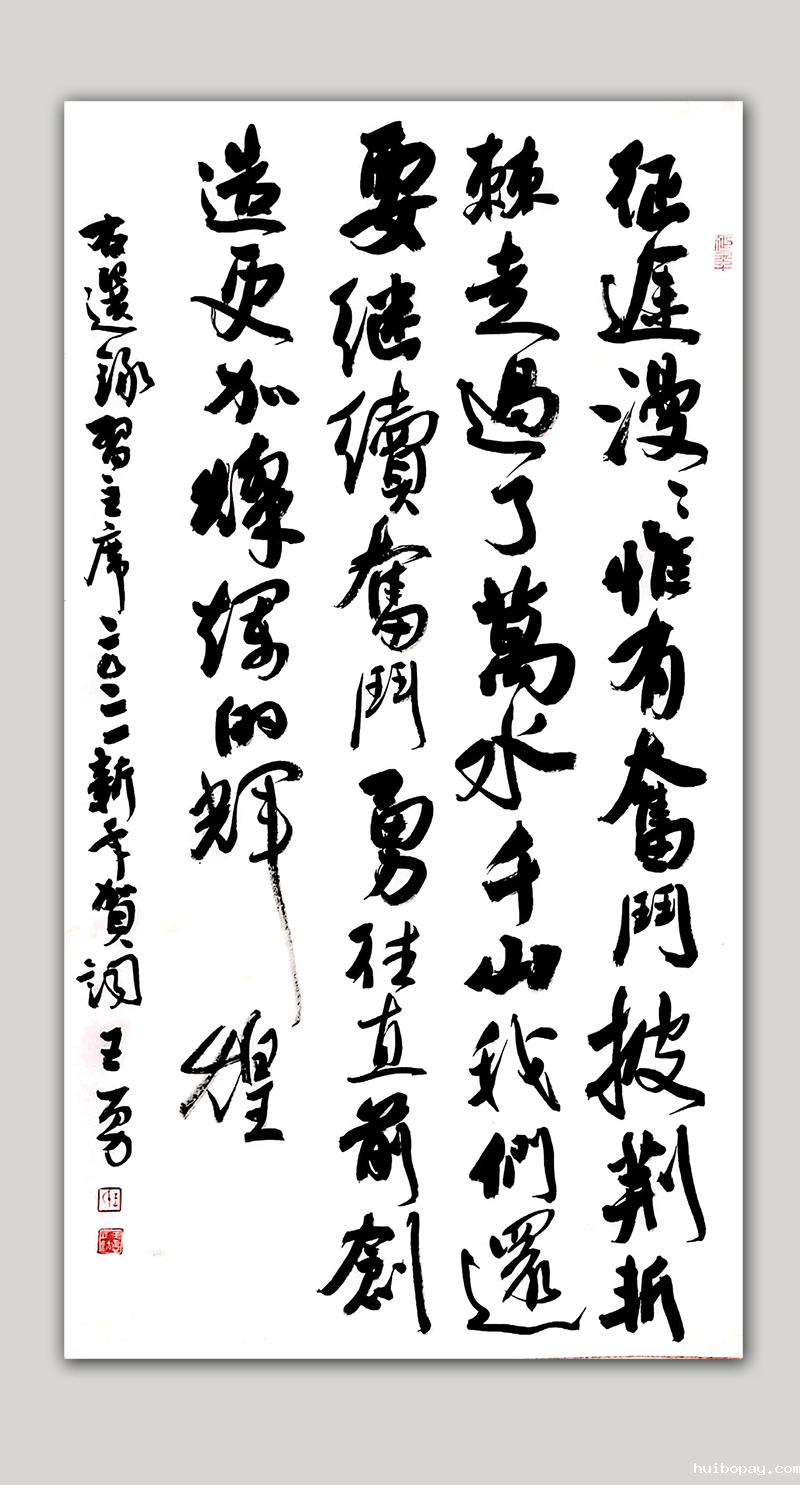 征途漫〻惟有奮鬥披荆折
棘走過了萬水千山我們還
要继續奮鬥勇往直前創
造更加燦爛的輝煌
右選録習主席二〇二一新年賀詞王勇
huibopay.com